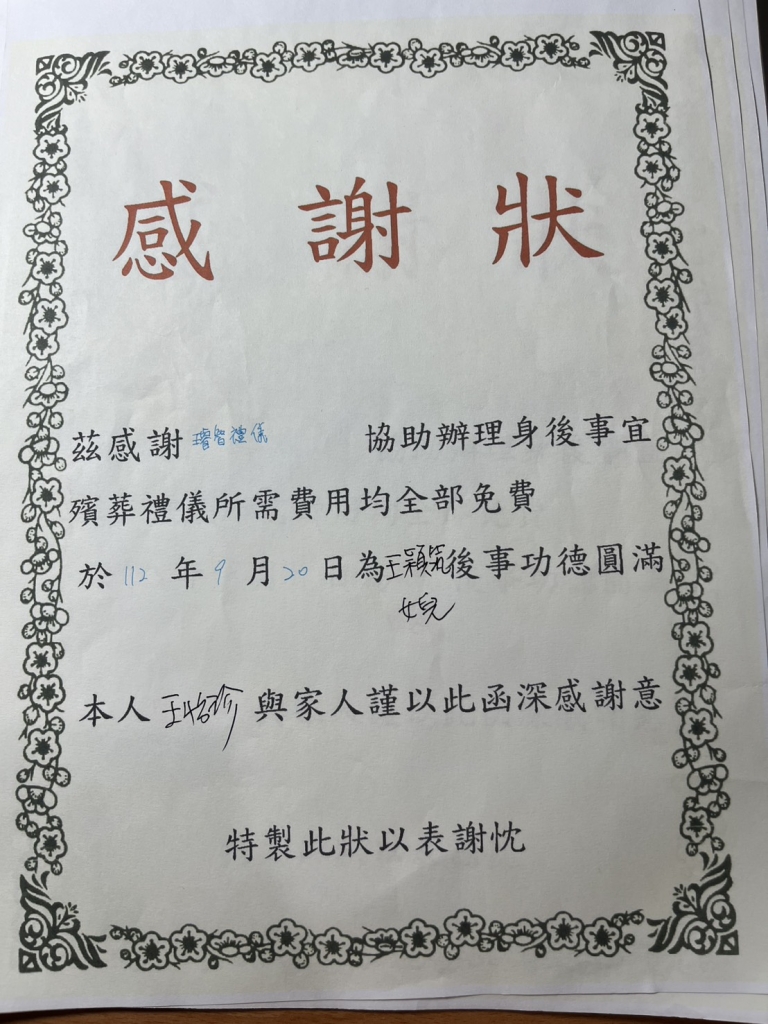 感謝狀
茲感謝 璿智禮儀 協助辦理身後事宜
殯葬禮儀所需費用均全部免費
於 112 年 9 月 20 日為王穎筑後事功德圓滿
女兒
本人 王怡珍 與家人謹以此函深感謝意
特製此狀以表謝忱